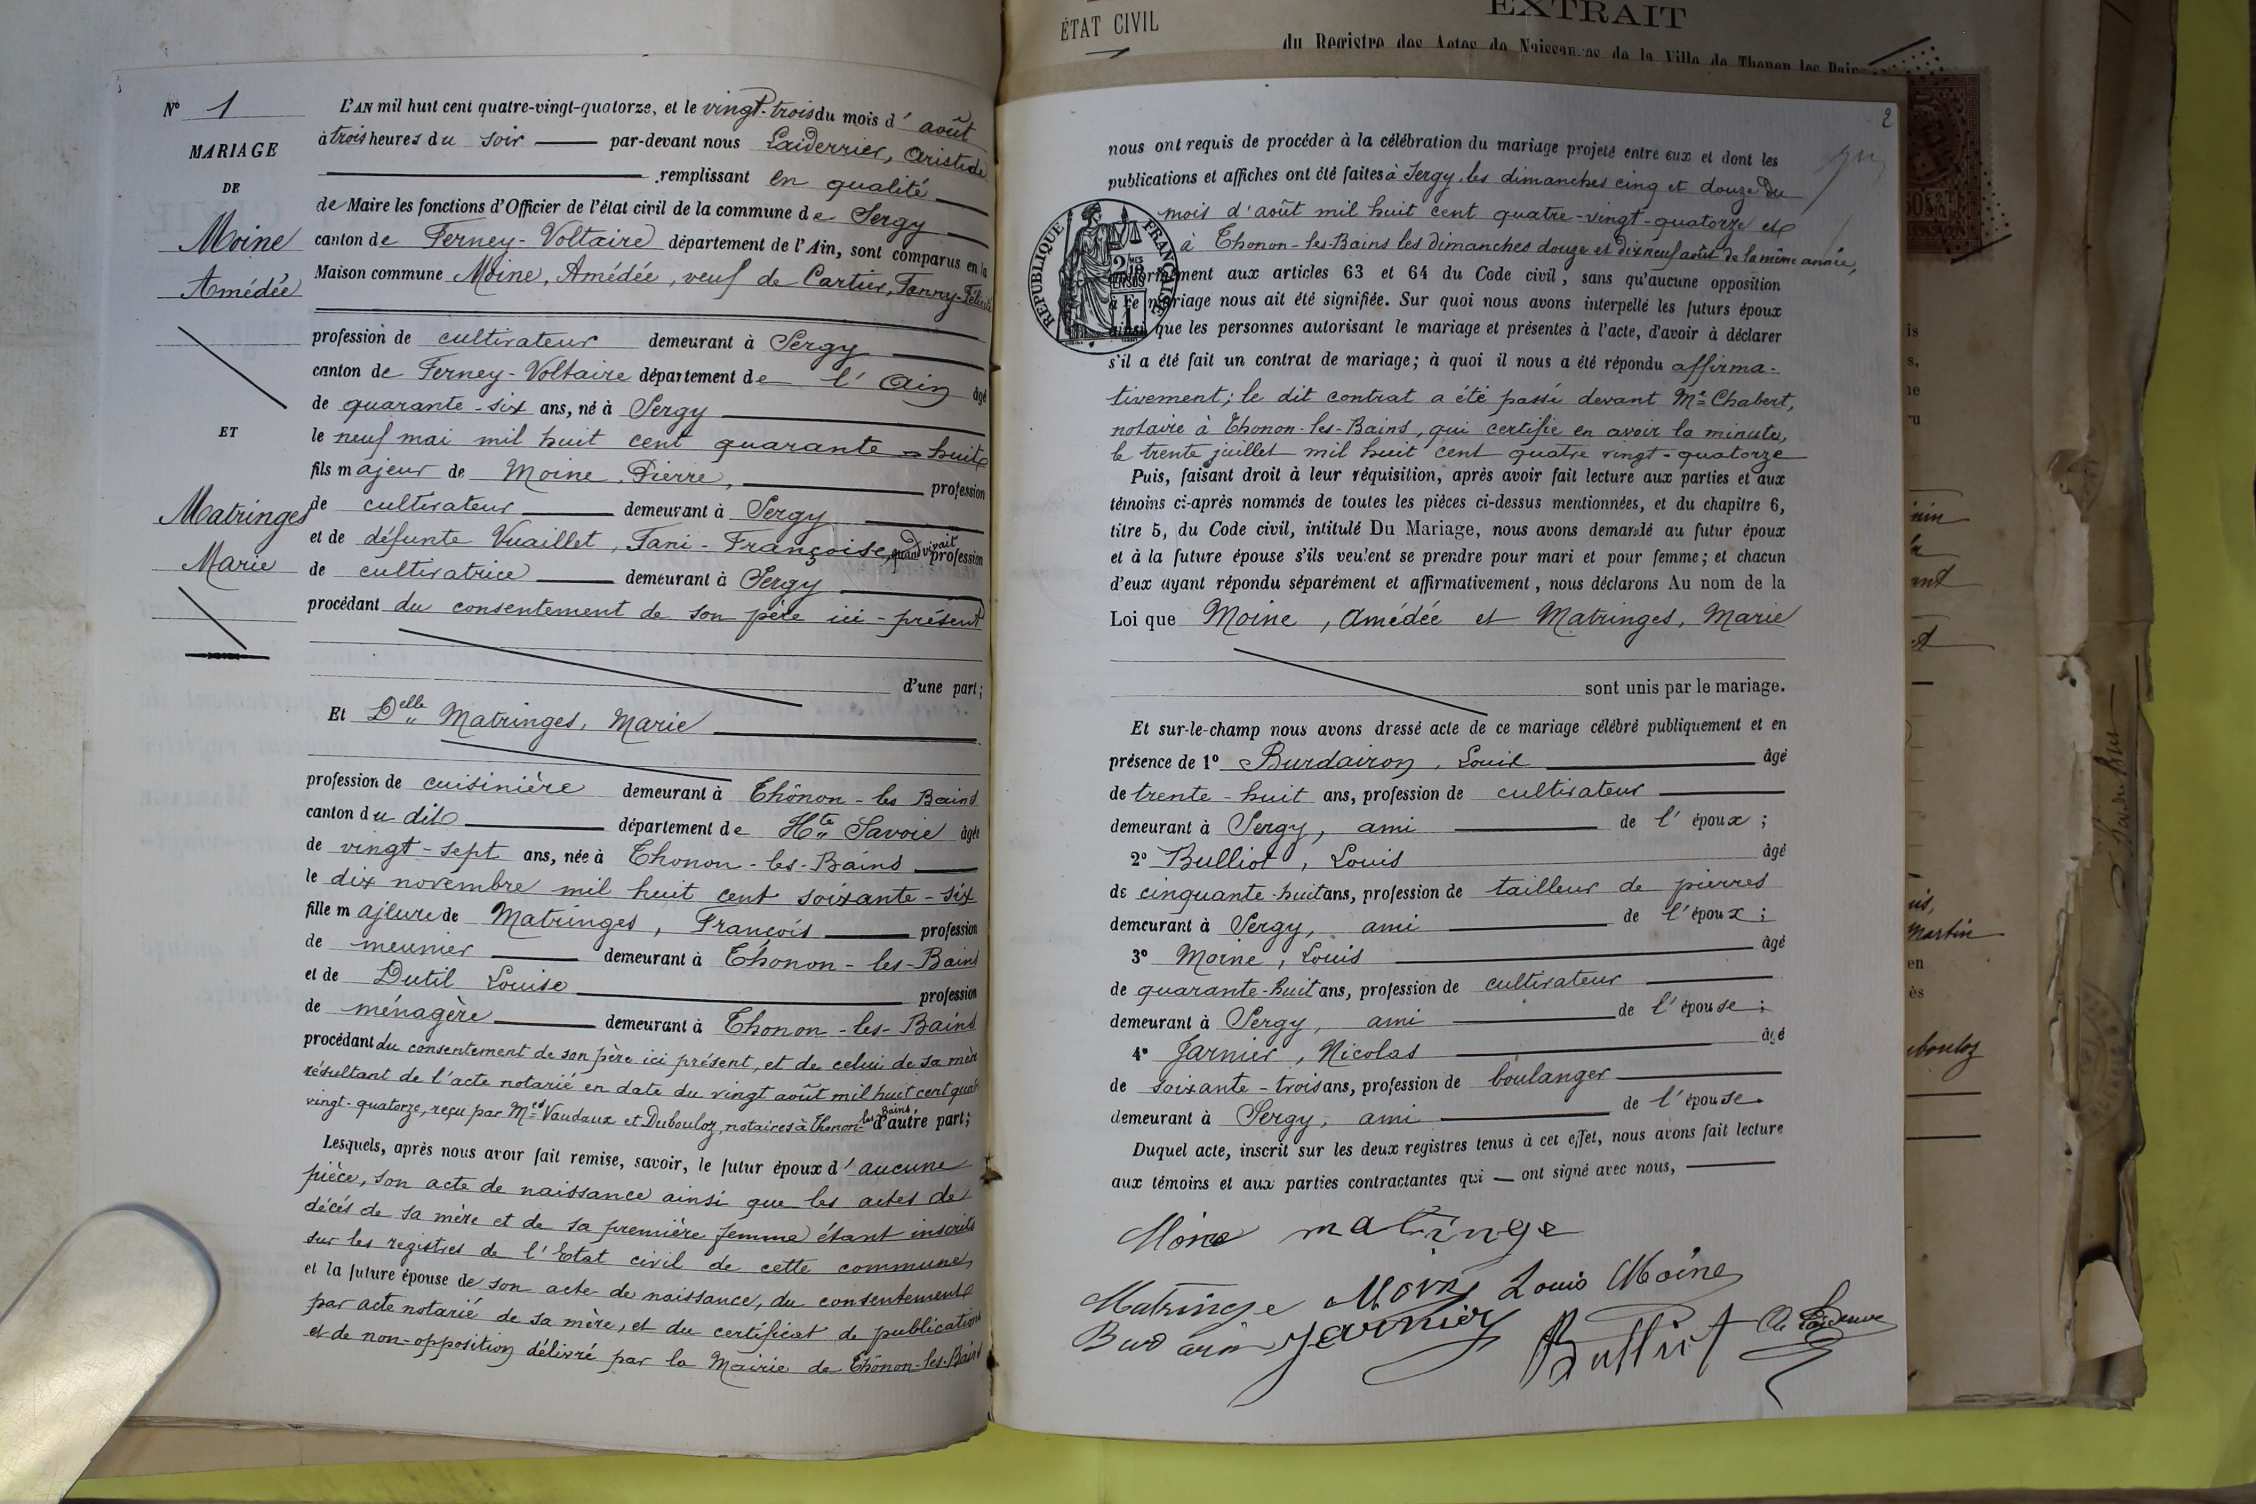 N° 1
MARIAGE
DE
Moine
Amédée
ET
Matringes
Marie
L'AN mil huit cent quatre-vingt-quatorze, et le vingt-trois du mois d'août
à trois heures du soir par-devant nous Laiderrier, Aristide
remplissant en qualité
de Maire les fonctions d'Officier de l'état civil de la commune de Sergy
canton de Ferney-Voltaire département de l'Ain, sont comparus en la
Maison commune Moine, Amédée, veuf de Cartier, Fanny-
profession de cultivateur demeurant à Sergy
canton de Ferney-Voltaire département de l'Ain âgé
de quarante-six ans, né à Sergy
le neuf mai mil huit cent quarante-huit
fils majeur de Moine, Pierre, profession
de cultivateur demeurant à Sergy
et de défunte Vuaillet, Fani-Françoise, quand vivait profession
de cultivatrice demeurant à Sergy
procédant du consentement de son père ici-présent
d'une part;
Et Delle Matringes, Marie
profession de cuisinière demeurant à Thônon-les Bains
canton du dit département de Hte Savoie âgée
de vingt-sept ans, née à Thonon-les-Bains
le dix novembre mil huit cent soixante-six
fille majeure de Matringes, François profession
de meunier demeurant à Thonon-les-Bains
et de Dutil Louise profession
de ménagère demeurant à Thonon-les-Bains
procédant du consentement de son père ici présent, et de celui de sa mère
résultant de l'acte notarié en date du vingt août mil huit cent quatre
vingt-quatorze, reçu par Mes Vaudaux et Dubouloz, notaires à Thonon-les Bains, d'autre part;
Lesquels, après nous avoir fait remise, savoir, le futur époux d'aucune
pièce, son acte de naissance ainsi que les actes de
décés de sa mère et de sa première femme étant inscrits
sur les registres de l'Etat civil de cette commune,
et la future épouse de son acte de naissance, du consentement
par acte notarié de sa mère, et du certificat de publication
et de non-opposition délivré par la Mairie de Thônon-les-Bains
ÉTAT CIVIL
EXTRAIT
du Registre des Actes de Naissances de la Ville de Thonon les Bains
2
nous ont requis de procéder à la célébration du mariage projeté entre eux et dont les
publications et affiches ont été faites à Sergy, les dimanches cinq et douze du
mois d'août mil huit cent quatre-vingt-quatorze et
à Thonon-les-Bains les dimanches douze et dix neuf août de la même année,
conformément aux articles 63 et 64 du Code civil, sans qu'aucune opposition
à ce mariage nous ait été signifiée. Sur quoi nous avons interpellé les futurs époux
ainsi que les personnes autorisant le mariage et présentes à l'acte, d'avoir à déclarer
s'il a été fait un contrat de mariage; à quoi il nous a été répondu affirma-
tivement; le dit contrat a été passé devant Me Chabert,
notaire à Thonon-les-Bains, qui certifie en avoir la minute,
le trente juillet mil huit cent quatre vingt-quatorze
Puis, faisant droit à leur réquisition, après avoir fait lecture aux parties et aux
témoins ci-après nommés de toutes les pièces ci-dessus mentionnées, et du chapitre 6,
titre 5, du Code civil, intitulé Du Mariage, nous avons demandé au futur époux
et à la future épouse s'ils veulent se prendre pour mari et pour femme; et chacun
d'eux ayant répondu séparément et affirmativement, nous déclarons Au nom de la
Loi que Moine, Amédée et Matringes, Marie
sont unis par le mariage.
Et sur-le-champ nous avons dressé acte de ce mariage célébré publiquement et en
présence de 1° Burdairon, Louis âgé
de trente-huit ans, profession de cultivateur
demeurant à Sergy, ami de l'époux;
2° Bulliot, Louis âgé
de cinquante-huit ans, profession de tailleur de pierres
demeurant à Sergy, ami de l'époux;
3° Moine, Louis âgé
de quarante-huit ans, profession de cultivateur
demeurant à Sergy, ami de l'épouse;
4° Jarnier, Nicolas âgé
de soixante-trois ans, profession de boulanger
demeurant à Sergy, ami de l'épouse.
Duquel acte, inscrit sur les deux registres tenus à cet effet, nous avons fait lecture
aux témoins et aux parties contractantes qui ont signé avec nous,
Moine matringe
Matringe Louis Moine
Jarnier Bulliot
RÉPUBLIQUE FRANÇAISE
Martin